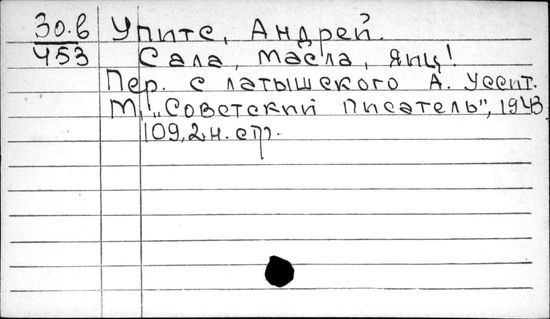 30.в Упитс, Андрей.
453 Сала, масла, яиц!
Пер. с латышского А. Уссит.
М, "Советский писатель", 1943.
109,2 н. стр.